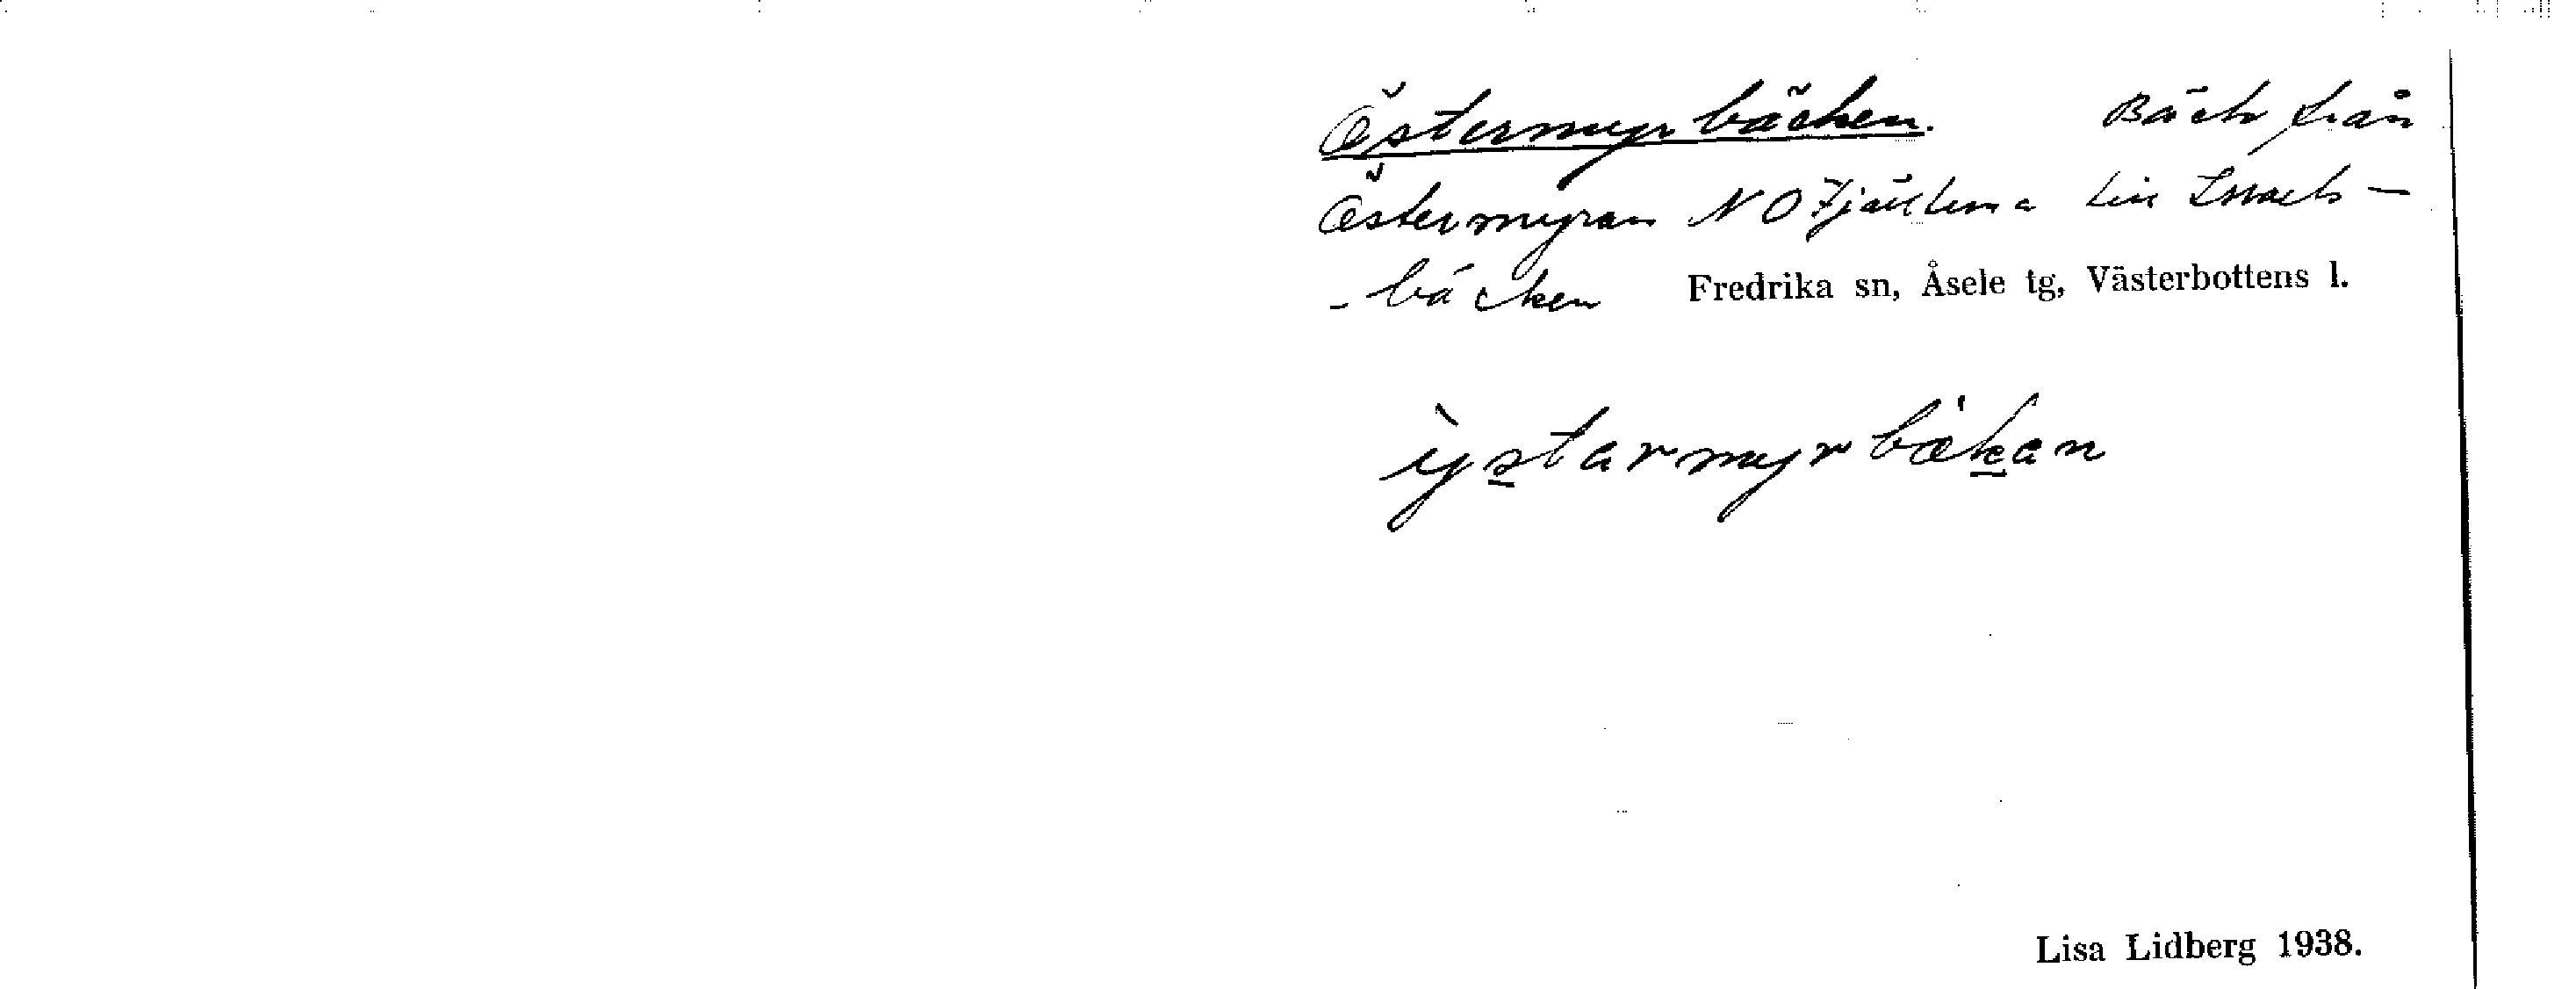 Östermyrbäcken. Bäck från
Östermyran NO Fjälltuna till Israels-
-bäcken Fredrika sn, Åsele tg, Västerbottens l.
ỳstarmyrbækan
Lisa Lidberg 1938.